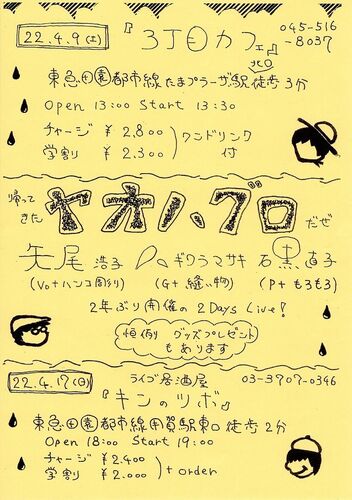 22.4.9(土)
『3丁目カフェ』
北口
045-516
-8037
東急田園都市線たまプラーザ駅徒歩3分
Open 13:00 Start 13:30
チャージ ¥2.800
学割 ¥2.300
ワンドリンク
付
帰って
きた
ヤオハ、グロ
だぜ
矢尾浩子
ハギワラマサキ
石黒直子
(Vo+ハンコ彫り)
(G+縫い物)
(P+もろもろ)
2年ぶり開催の2Days Live!
恒例 グッズプレゼント
もあります
22.4.17(日)
ライブ居酒屋
03-3707-0346
『キンのツボ』
東急田園都市線用賀駅東口徒歩2分
Open 18:00 Start 19:00
チャージ ¥2.400
学割 ¥2.000
+order